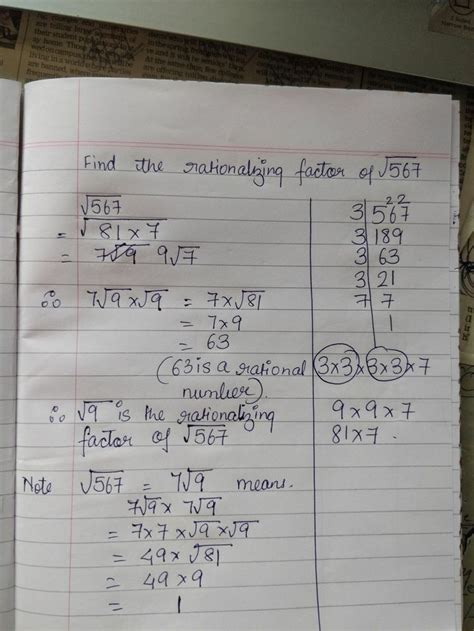 Find the rationalizing factor of √567
√567
= √81 x 7
= 7√9 9√7
∴ 7√9 x √9 = 7 x √81
= 7 x 9
= 63
(63 is a rational
number).
∴ √9 is the rationalizing
factor of √567
3 | 567 22
3 | 189
3 | 63
3 | 21
7 | 7
1
3 x 3 x 3 x 3 x 7
9 x 9 x 7
81 x 7 .
Note √567 = 7√9 means.
7√9 x 7√9
= 7 x 7 x √9 x √9
= 49 x √81
= 49 x 9
= 1